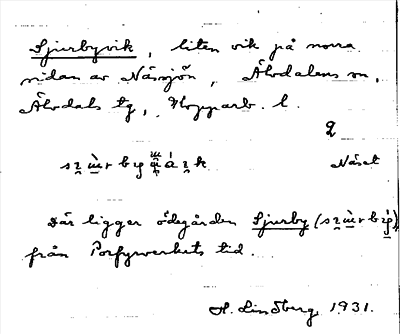 Sjurbyvik, liten vik på norra
sidan av Nässjön, Älvdalens sn,
Älvdals tg, Kopparb. l.
2
Näset
Där ligger ödegården Sjurby
från Porfyrverkets tid.
H. Lindberg, 1931.